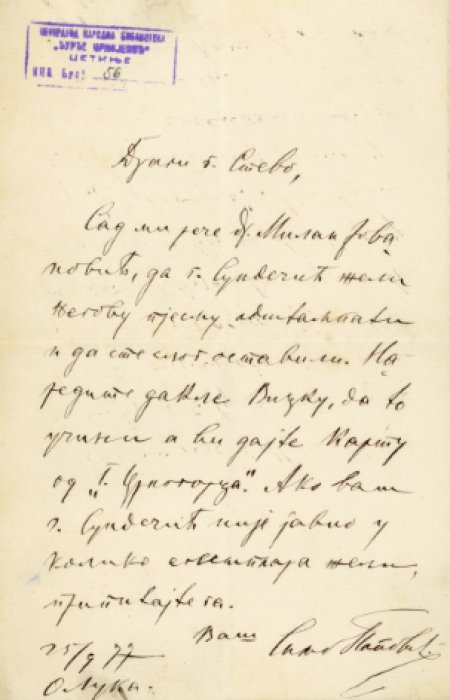 ЦЕНТРАЛНА НАРОДНА БИБЛИОТЕКА
„ЂУРЂЕ ЦРНОЈЕВИЋ“
ЦЕТИЊЕ
ИНВ. БРОЈ 56
Драги г. Стево,
Сад ми рече др. Милан Јова-
новић, да г. Сундечић жели
његову пјесму одштампати
и да сте слог оставили. На-
редите дакле Вицку, да то
учини а ви дајте карту
од „Г. Црногорца“. Ако вам
г. Сундечић није јавио у
колико жели,
припитајте га.
Ваш Симо Поповић
25/9 77
О. Лука.